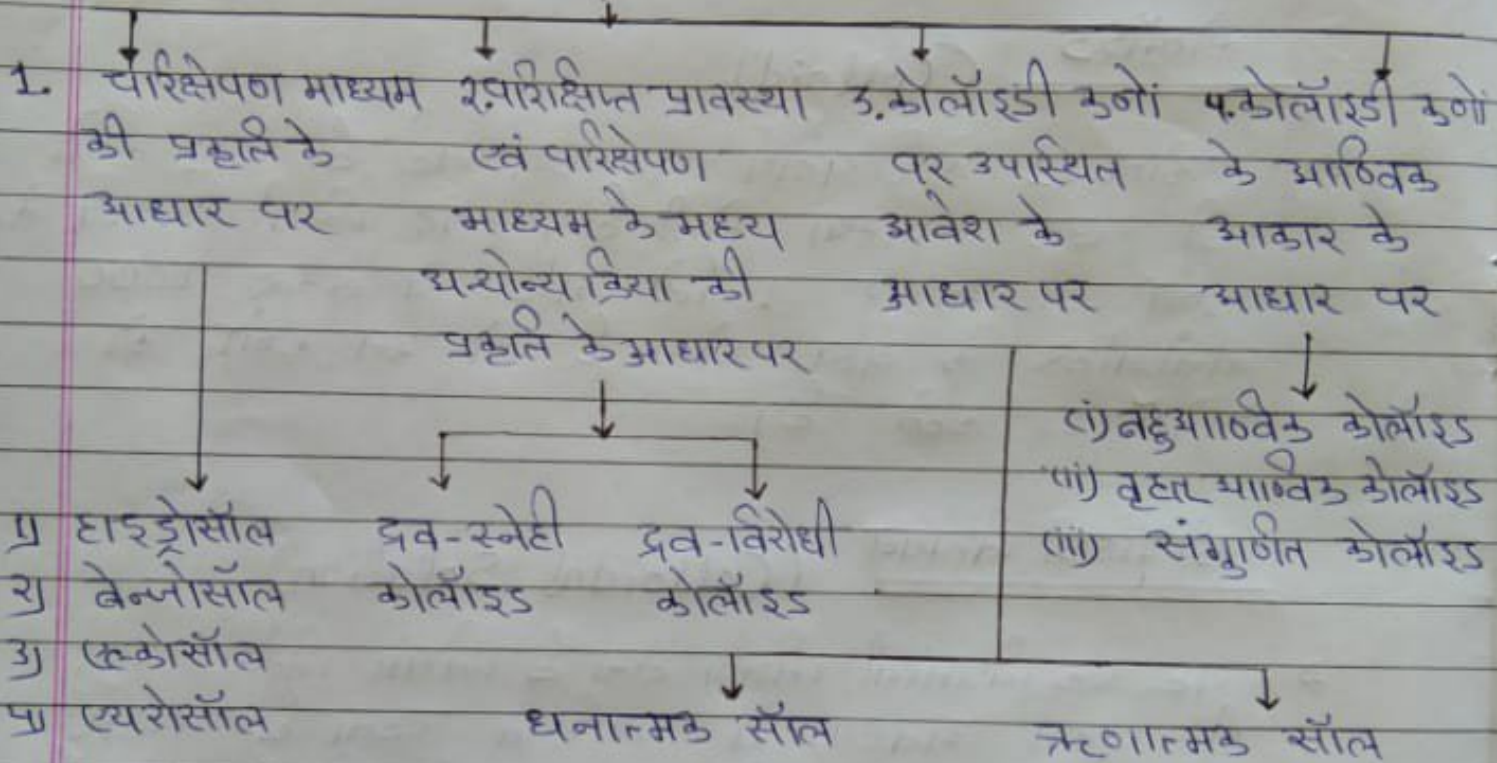 1. परिक्षेपण माध्यम
की प्रकृति के
आधार पर
२. परिक्षिप्त प्रावस्था
एवं परिक्षेपण
माध्यम के मध्य
अन्योन्य क्रिया की
प्रकृति के आधार पर
३. कोलॉइडी कणों
पर उपस्थित
आवेश के
आधार पर
४. कोलॉइडी कणों
के आण्विक
आकार के
आधार पर
१) हाइड्रोसॉल
२) बेन्जोसॉल
३) एल्कोसॉल
४) एयरोसॉल
द्रव-स्नेही
कोलॉइड
द्रव-विरोधी
कोलॉइड
(i) बहुआण्विक कोलॉइड
(ii) वृहत आण्विक कोलॉइड
(iii) संगुणित कोलॉइड
धनात्मक सॉल
ऋणात्मक सॉल